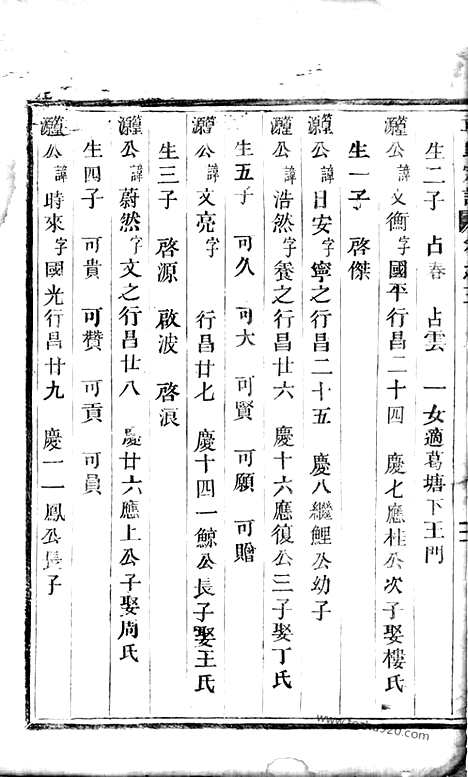 生二子 占春 占雲 一女適葛塘下王門
瓘公諱文衡字國平行昌二十四 慶七應桂公次子娶樓氏
生一子 啓傑
瓘公諱日安字寧之行昌二十五 慶八繼鯉公幼子
瓘公諱浩然字養之行昌廿六 慶十六應復公三子娶丁氏
生五子 可久 可大 可賢 可願 可贈
瓘公諱文亮字 行昌廿七 慶十四一鯨公長子娶王氏
生三子 啓源 啟波 啓浪
瓘公諱蔚然字文之行昌廿八 慶廿六應上公子娶周氏
生四子 可貴 可贊 可貢 可員
公諱時來字國光行昌廿九 慶一一鳳公長子
www.fozhu920.com